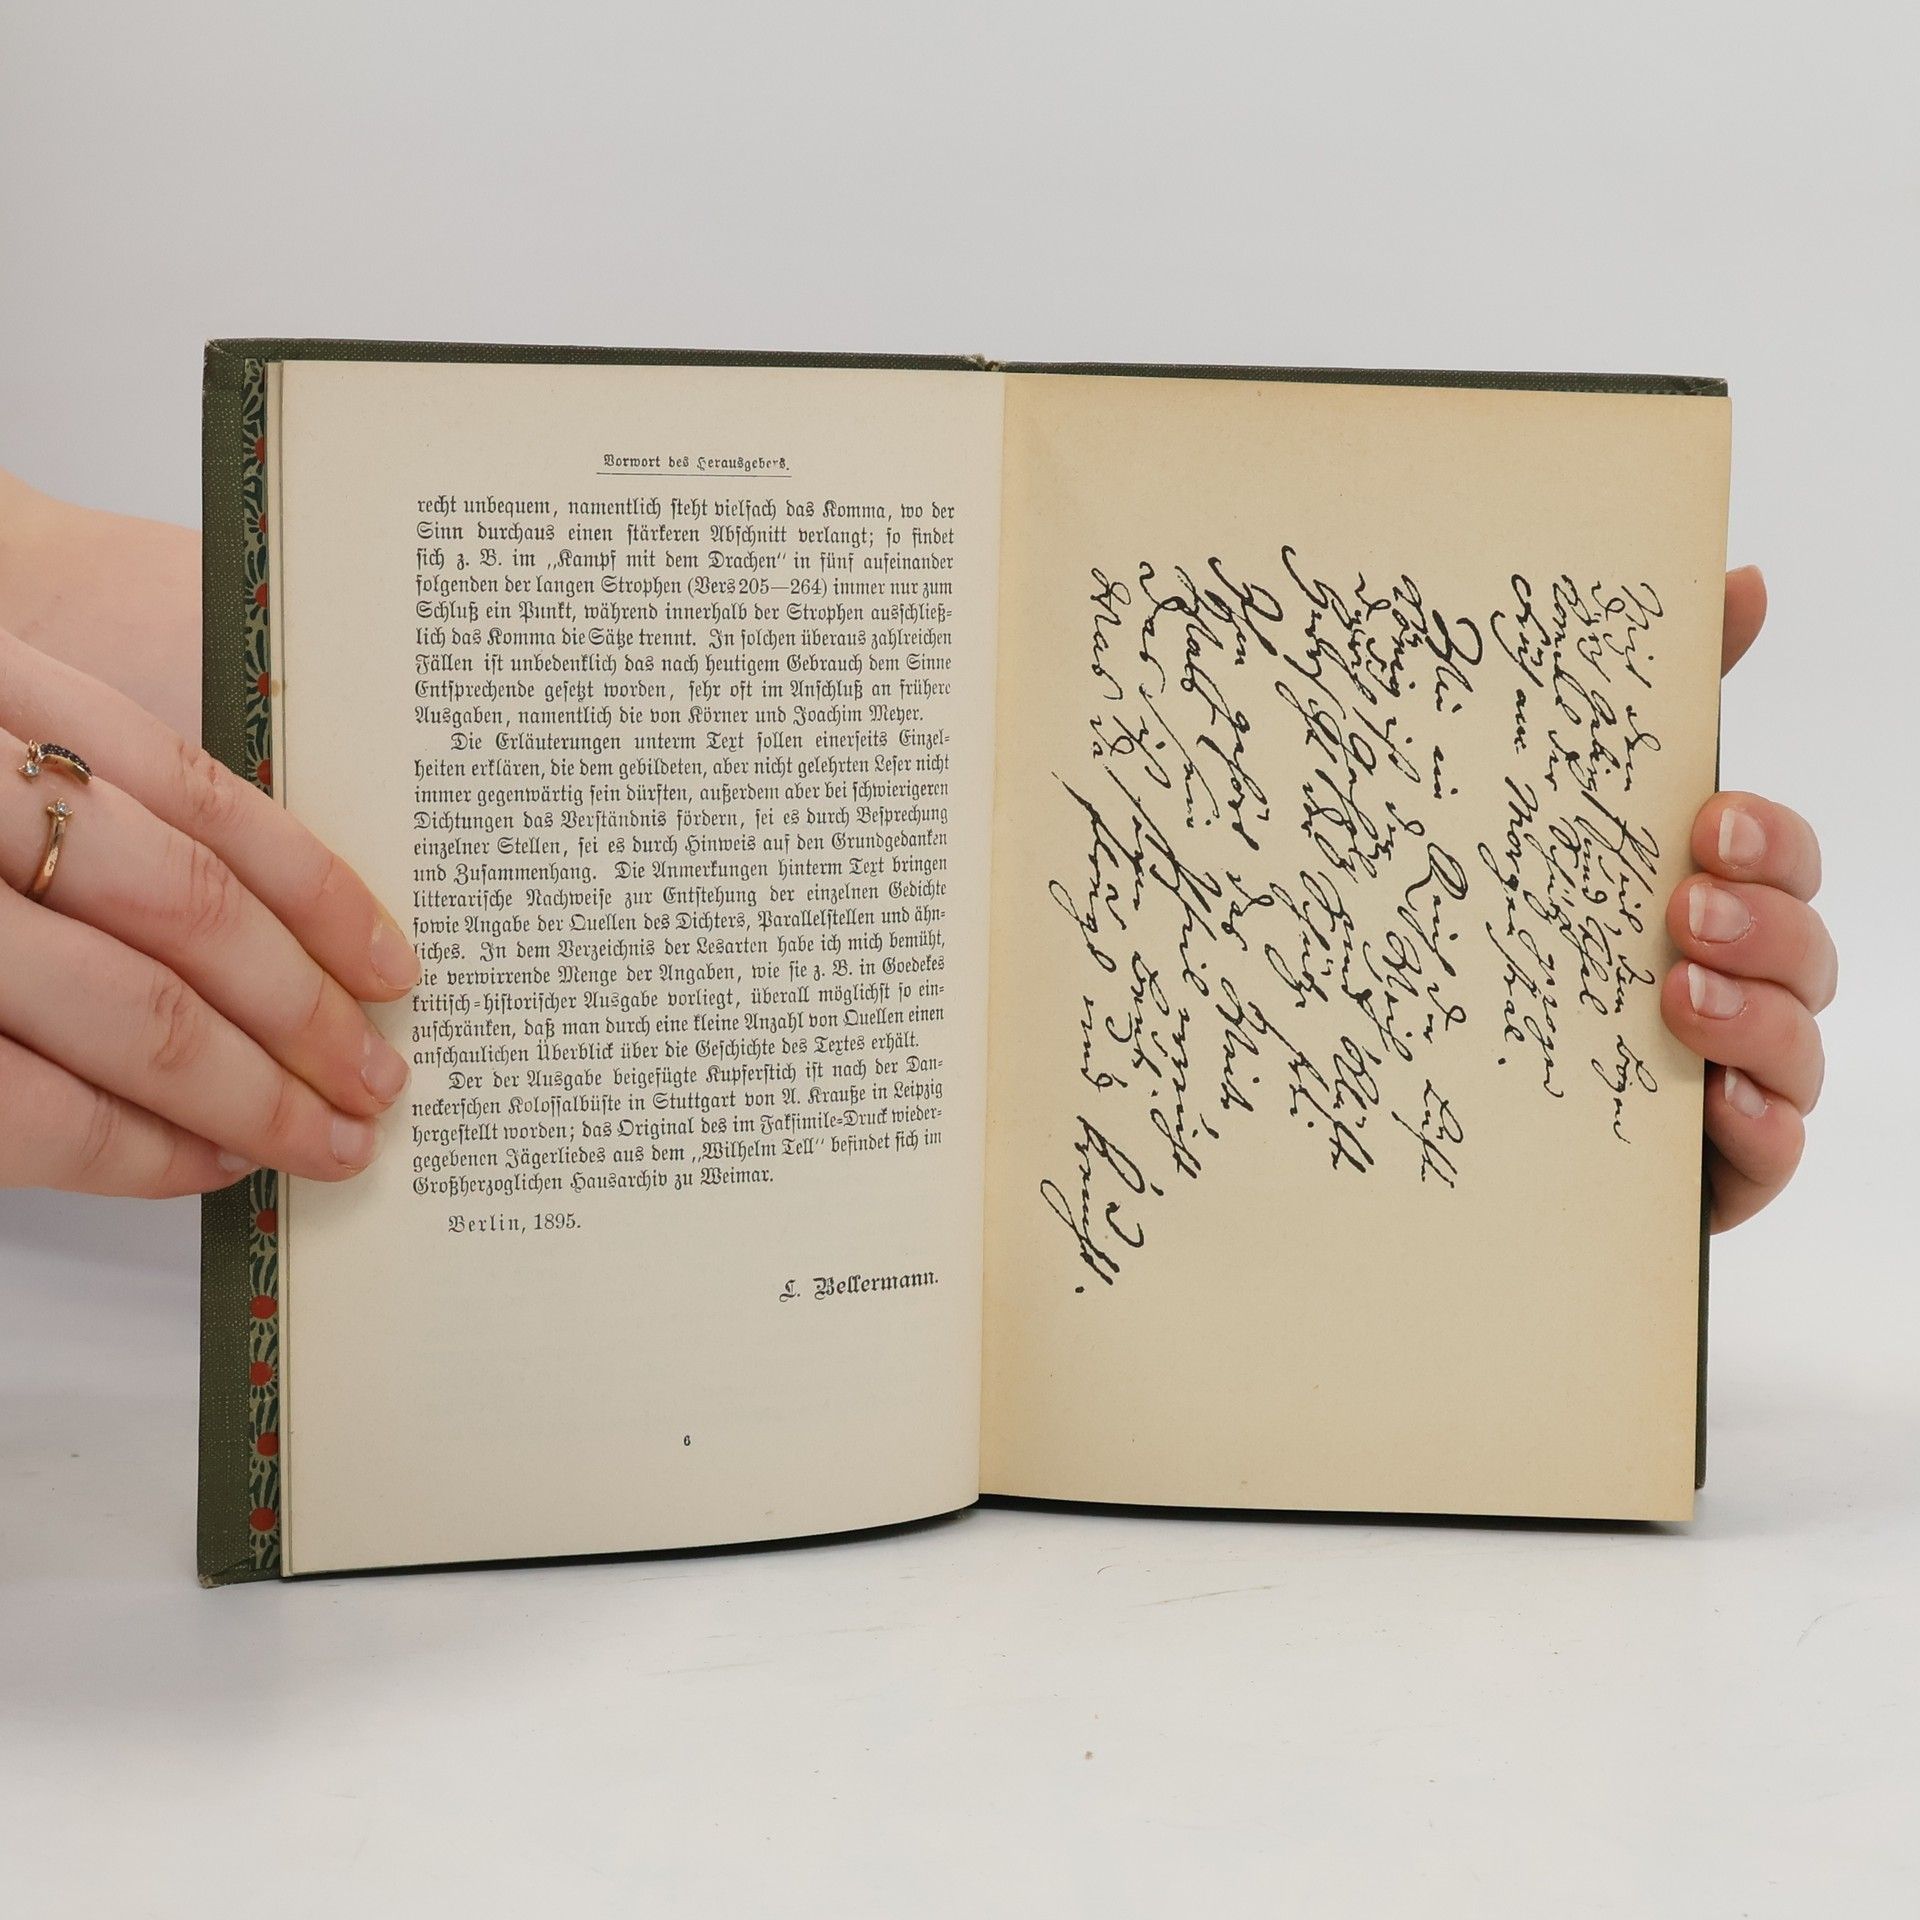 Vorwort des Herausgebers.
recht unbequem, namentlich steht vielfach das Komma, wo der
Sinn durchaus einen stärkeren Abschnitt verlangt; so findet
sich z. B. im „Kampf mit dem Drachen“ in fünf aufeinander
folgenden der langen Strophen (Vers 205—264) immer nur zum
Schluß ein Punkt, während innerhalb der Strophen ausschließ-
lich das Komma die Sätze trennt. In solchen überaus zahlreichen
Fällen ist unbedenklich das nach heutigem Gebrauch dem Sinne
Entsprechende gesetzt worden, sehr oft im Anschluß an frühere
Ausgaben, namentlich die von Körner und Joachim Meyer.
Die Erläuterungen unterm Text sollen einerseits Einzel-
heiten erklären, die dem gebildeten, aber nicht gelehrten Leser nicht
immer gegenwärtig sein dürften, außerdem aber bei schwierigeren
Dichtungen das Verständnis fördern, sei es durch Besprechung
einzelner Stellen, sei es durch Hinweis auf den Grundgedanken
und Zusammenhang. Die Anmerkungen hinterm Text bringen
litterarische Nachweise zur Entstehung der einzelnen Gedichte
sowie Angabe der Quellen des Dichters, Parallelstellen und ähn-
liches. In dem Verzeichnis der Lesarten habe ich mich bemüht,
die verwirrende Menge der Angaben, wie sie z. B. in Goedekes
kritisch-historischer Ausgabe vorliegt, überall möglichst so ein-
zuschränken, daß man durch eine kleine Anzahl von Quellen einen
anschaulichen Überblick über die Geschichte des Textes erhält.
Der der Ausgabe beigefügte Kupferstich ist nach der Dan-
neckerschen Kolossalbüste in Stuttgart von A. Krauße in Leipzig
hergestellt worden; das Original des im Faksimile-Druck wieder-
gegebenen Jägerliedes aus dem „Wilhelm Tell“ befindet sich im
Großherzoglichen Hausarchiv zu Weimar.
Berlin, 1895.
L. Bellermann.
6
Mit dem Pfeil, dem Bogen
Durch Gebirg und Thal
Kommt der Schütz gezogen
Früh am Morgenstral.
Wie im Reich der Lüfte
König ist der Weih,
Durch Gebirg und Klüfte
Herrscht der Schütze frei.
Ihm gehört das Weite
Was sein Pfeil erreicht
Das ist seine Beute.
Was da fleugt und kreucht.